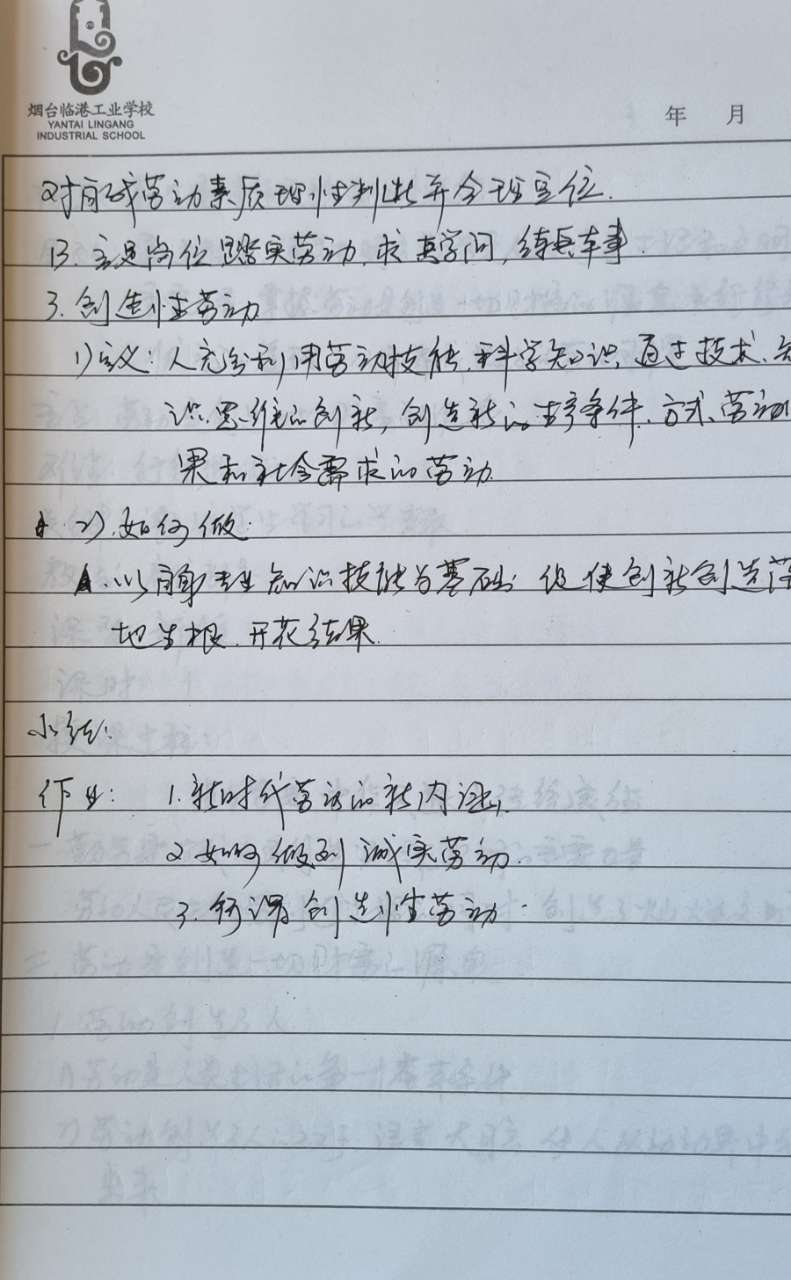 烟台临港工业学校
YANTAI LINGANG
INDUSTRIAL SCHOOL
年 月
对自己劳动素质理性判断并合理定位.
B. 立足岗位踏实劳动, 求真学问, 练真本事.
3. 创造性劳动
1) 定义: 人充分利用劳动技能、科学知识, 通过技术、知
识、思维的创新, 创造新的生产条件、方式、劳动
果和社会需求的劳动.
2). 如何做:
A. 以自身专业知识技能为基础; 促使创新创造落
地生根、开花结果.
小结:
作业: 1. 新时代劳动的新内涵.
2. 如何做到诚实劳动.
3. 何谓创造性劳动.